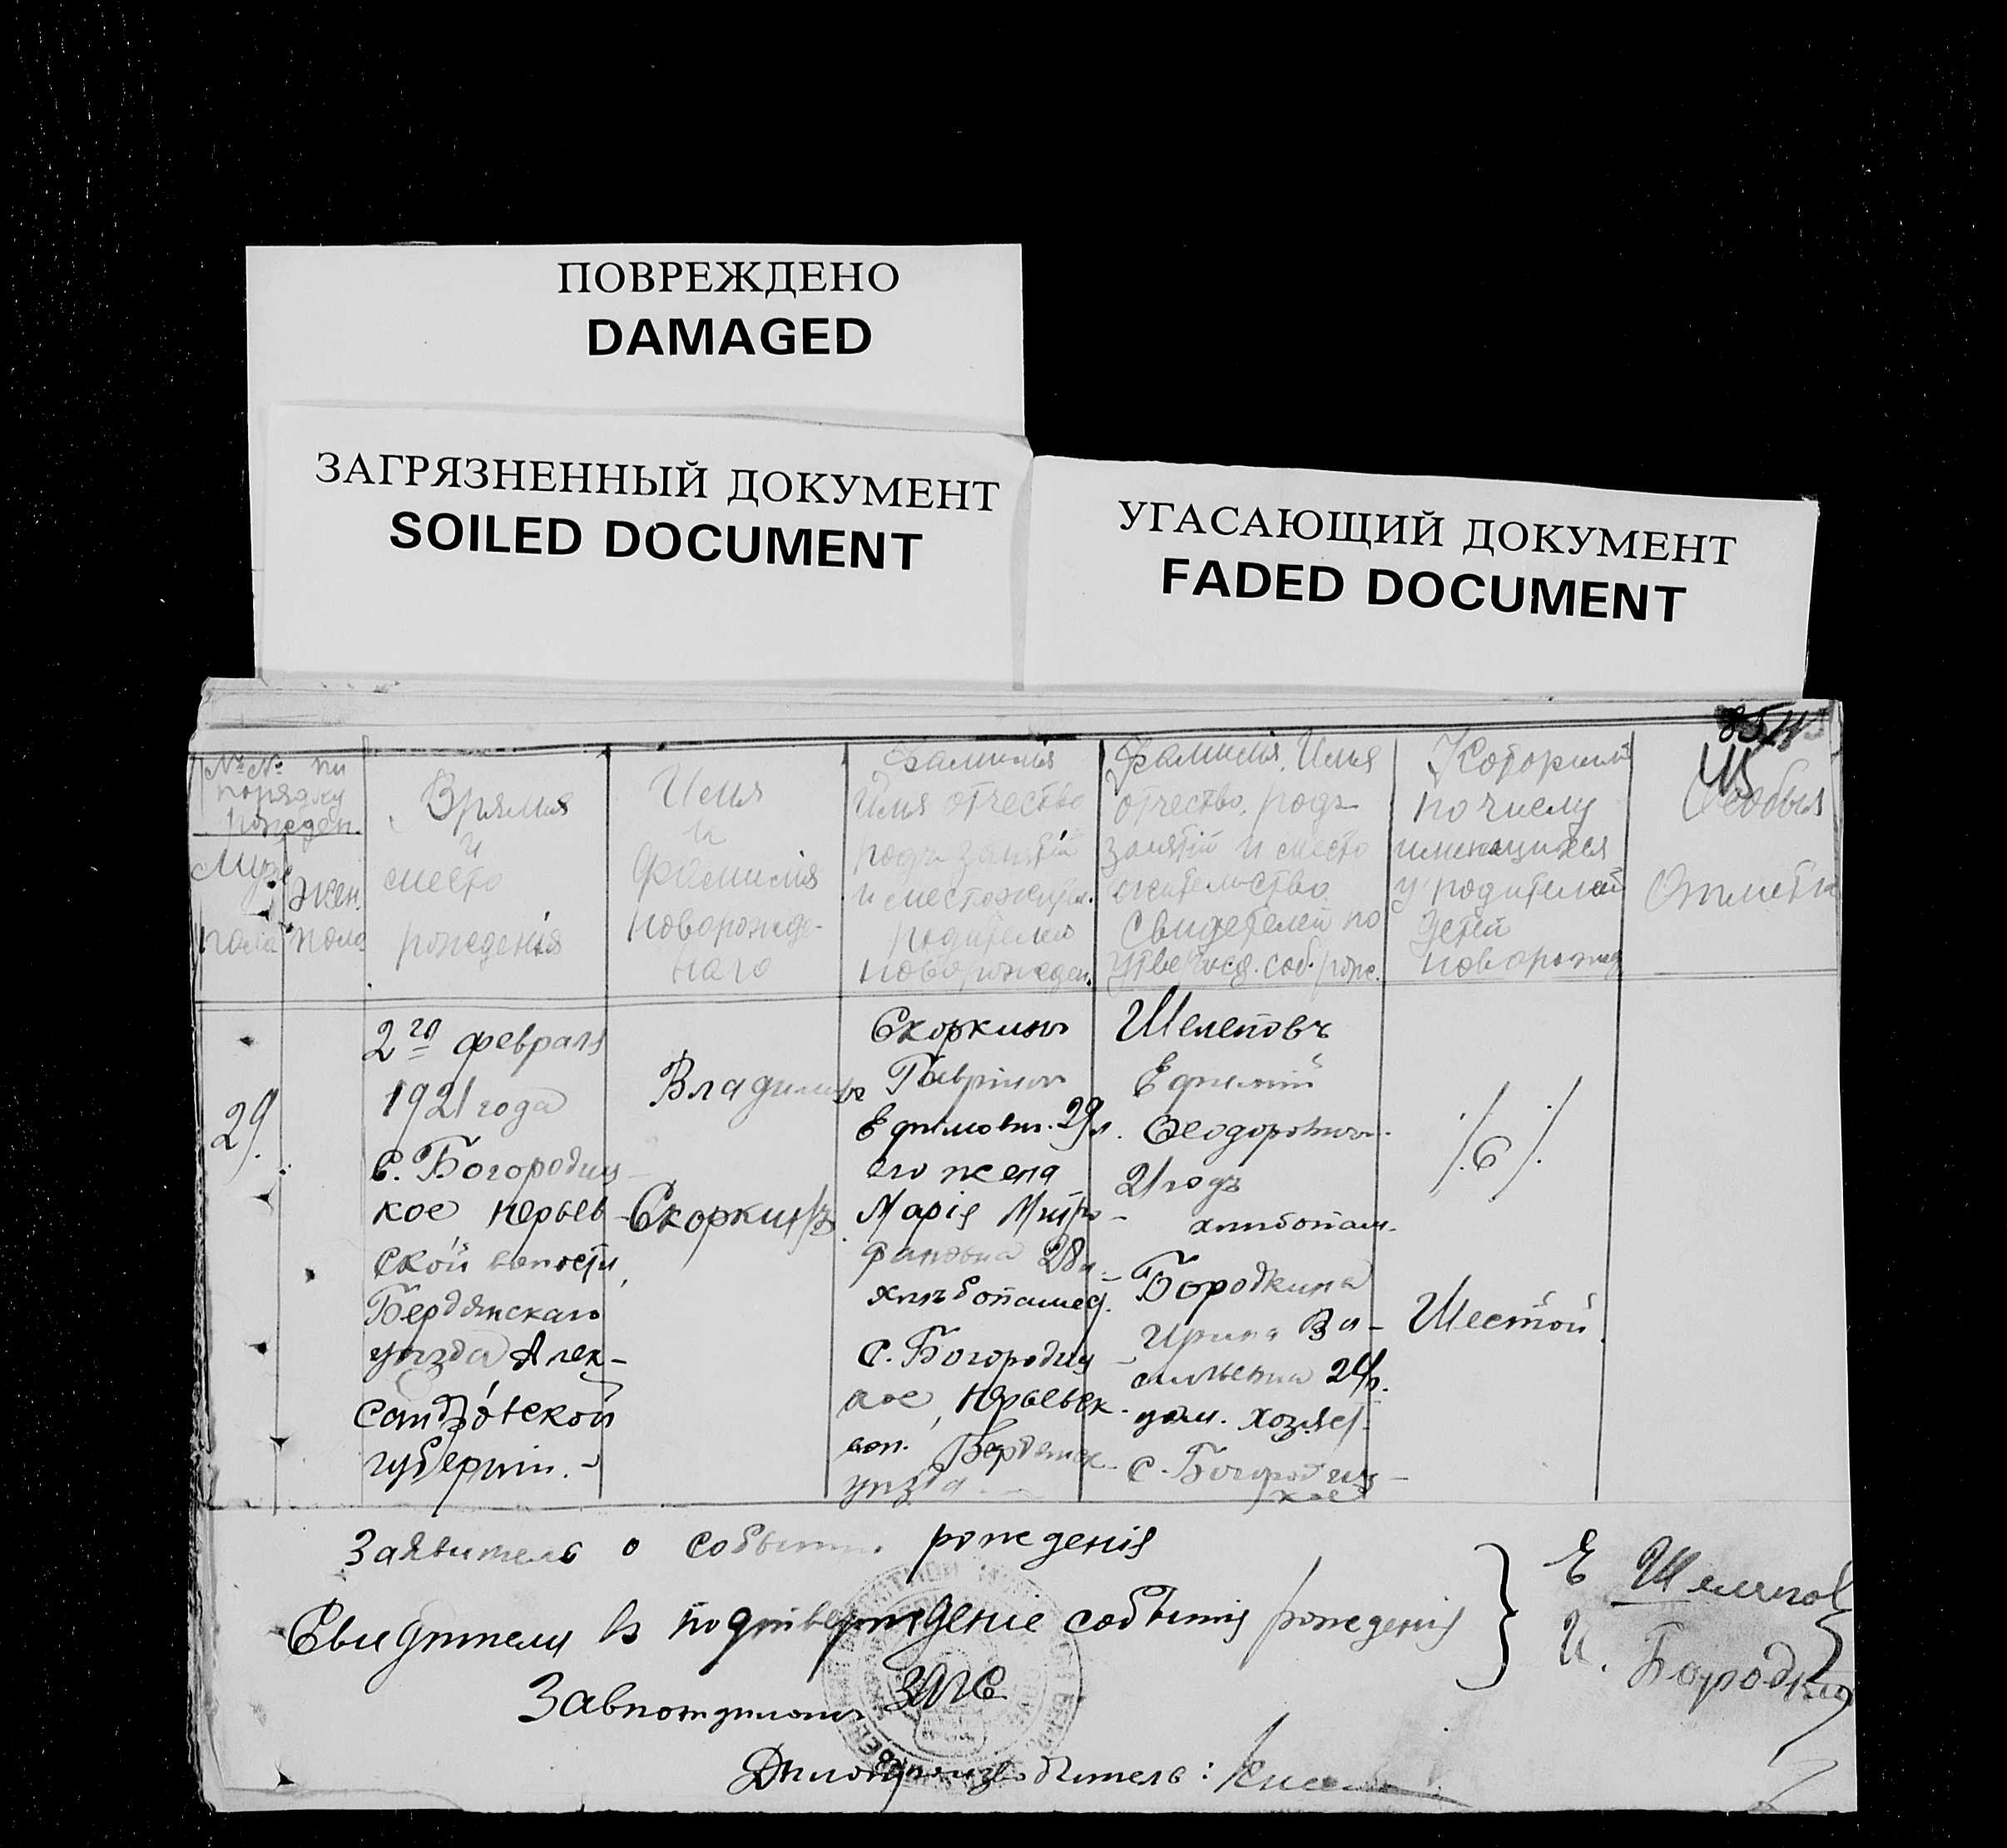 ПОВРЕЖДЕНО
DAMAGED
ЗАГРЯЗНЕННЫЙ ДОКУМЕНТ
SOILED DOCUMENT
УГАСАЮЩИЙ ДОКУМЕНТ
FADED DOCUMENT
№№ по
порядку
рожден.
Муж.
пола
Жен.
пола
Время
и
место
рожденія
Имя
и
Фамилія
новорожде-
наго
Фамилія
Имя отчество
родъ занятій
и местожит.
родителей
новорожден.
Фамилія, Имя
отчество, родъ
занятій и место
жительство
Свидетелей по
утвержд. соб. рож.
Который
по числу
имеющихся
у родителей
детей
новорожд
45
Особыя
Отметк
29.
2го февраля
1921 года
с. Богородиц-
кое Юрьев-
ской волости,
Бердянскаго
уѣзда Алек-
сандровской
губерніи.-
Владимиръ
Скоркинъ
Скоркинъ
Гавріилъ
Ефимович. 29л.
его жена
Марія Митро-
фановна 28л.
хлѣбопашец.
с. Богородиц-
кое, Юрьевск.
вол. Бердянск.
уѣзда
Шелеповъ
Ефимій
Феодорович.
21 годъ
хлѣбопаш.
Бородкина
Ирина Ва-
сильевна 24л.
дом. хозяй.
с. Богородиц-
кое
6
Шестой.
Заявитель о событіи рожденія
Свидѣтели въ подтвержденіе событія рожденія
Е Шелепов
И. Бородкина
Завподотдѣломъ ЗАГС
Дѣлопроизводитель: